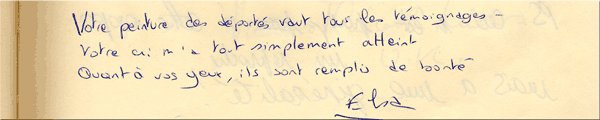 Votre peinture des déportés vaut tous les témoignages -
votre cri m'a tout simplement atteint
Quant à vos yeux, ils sont remplis de bonté
Elsa